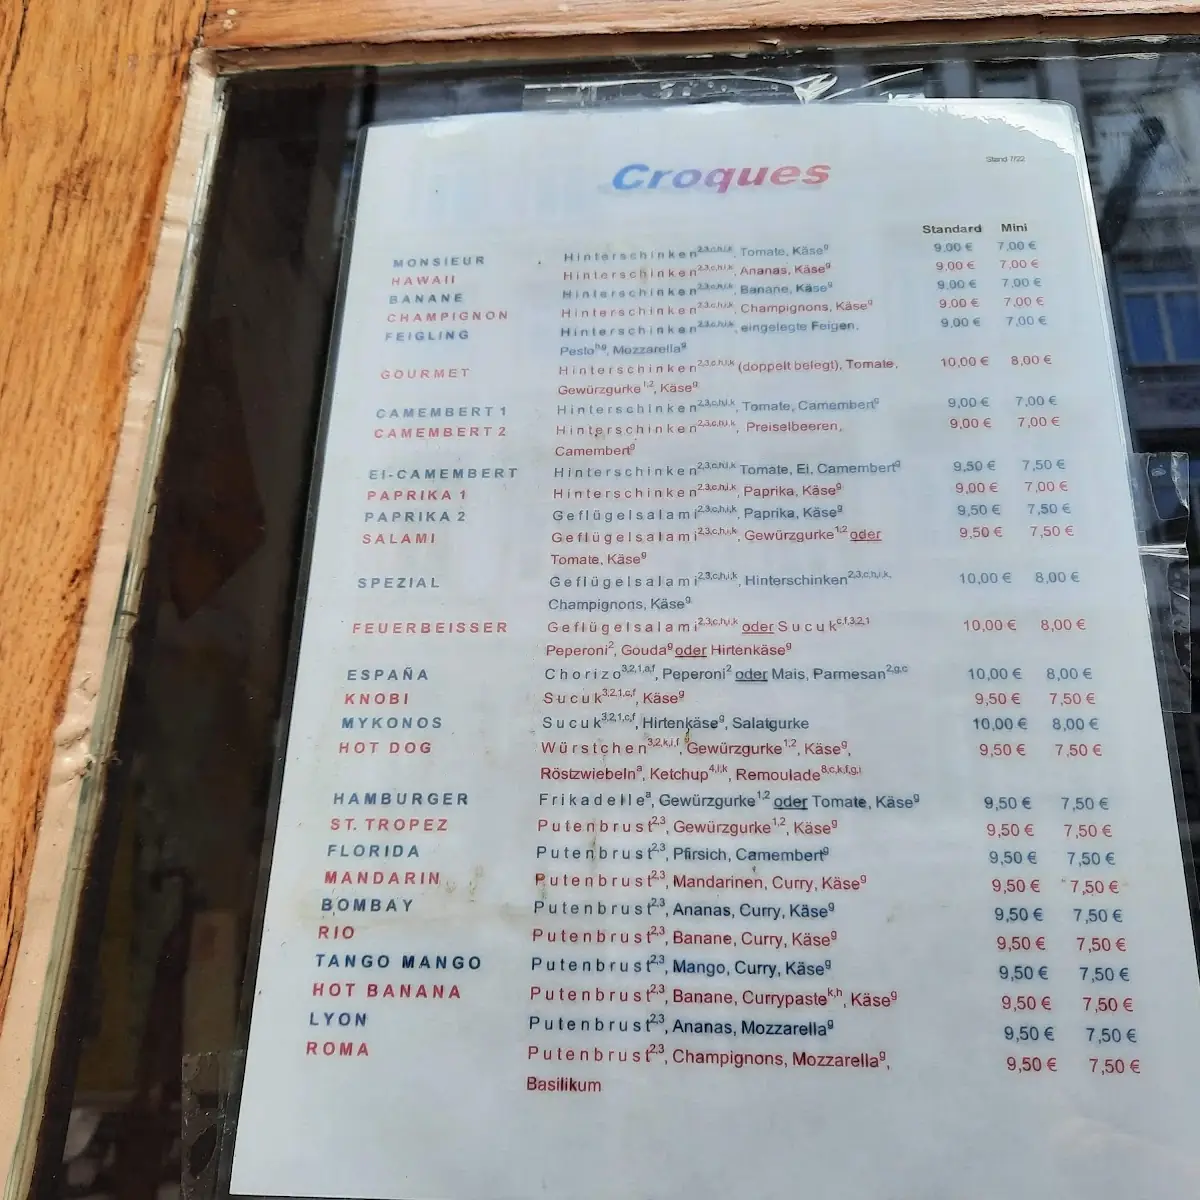 Croques
Stand 7/22
Standard Mini
MONSIEUR Hinterschinken2,3,c,h,i,k, Tomate, Käseg 9,00 € 7,00 €
HAWAII Hinterschinken2,3,c,h,i,k, Ananas, Käseg 9,00 € 7,00 €
BANANE Hinterschinken2,3,c,h,i,k, Banane, Käseg 9,00 € 7,00 €
CHAMPIGNON Hinterschinken2,3,c,h,i,k, Champignons, Käseg 9,00 € 7,00 €
FEIGLING Hinterschinken2,3,c,h,i,k, eingelegte Feigen, 9,00 € 7,00 €
Pestoh,g, Mozzarellag
GOURMET Hinterschinken2,3,c,h,i,k (doppelt belegt), Tomate, 10,00 € 8,00 €
Gewürzgurke1,2, Käseg
CAMEMBERT 1 Hinterschinken2,3,c,h,i,k, Tomate, Camembertg 9,00 € 7,00 €
CAMEMBERT 2 Hinterschinken2,3,c,h,i,k, Preiselbeeren, 9,00 € 7,00 €
Camembertg
EI-CAMEMBERT Hinterschinken2,3,c,h,i,k, Tomate, Ei, Camembertg 9,50 € 7,50 €
PAPRIKA 1 Hinterschinken2,3,c,h,i,k, Paprika, Käseg 9,00 € 7,00 €
PAPRIKA 2 Geflügelsalami2,3,c,h,i,k, Paprika, Käseg 9,50 € 7,50 €
SALAMI Geflügelsalami2,3,c,h,i,k, Gewürzgurke1,2 oder 9,50 € 7,50 €
Tomate, Käseg
SPEZIAL Geflügelsalami2,3,c,h,i,k, Hinterschinken2,3,c,h,i,k, 10,00 € 8,00 €
Champignons, Käseg
FEUERBEISSER Geflügelsalami2,3,c,h,i,k oder Sucukc,f,3,2,1 10,00 € 8,00 €
Peperoni2, Goudag oder Hirtenkäseg
ESPAÑA Chorizo3,2,1,a,f, Peperoni2 oder Mais, Parmesan2,g,c 10,00 € 8,00 €
KNOBI Sucuk3,2,1,c,f, Käseg 9,50 € 7,50 €
MYKONOS Sucuk3,2,1,c,f, Hirtenkäseg, Salatgurke 10,00 € 8,00 €
HOT DOG Würstchen3,2,k,i,f, Gewürzgurke1,2, Käseg, 9,50 € 7,50 €
Röstzwiebelna, Ketchup4,i,k, Remoulade8,c,k,f,g,i
HAMBURGER Frikadellea, Gewürzgurke1,2 oder Tomate, Käseg 9,50 € 7,50 €
ST. TROPEZ Putenbrust2,3, Gewürzgurke1,2, Käseg 9,50 € 7,50 €
FLORIDA Putenbrust2,3, Pfirsich, Camembertg 9,50 € 7,50 €
MANDARIN Putenbrust2,3, Mandarinen, Curry, Käseg 9,50 € 7,50 €
BOMBAY Putenbrust2,3, Ananas, Curry, Käseg 9,50 € 7,50 €
RIO Putenbrust2,3, Banane, Curry, Käseg 9,50 € 7,50 €
TANGO MANGO Putenbrust2,3, Mango, Curry, Käseg 9,50 € 7,50 €
HOT BANANA Putenbrust2,3, Banane, Currypastek,h, Käseg 9,50 € 7,50 €
LYON Putenbrust2,3, Ananas, Mozzarellag 9,50 € 7,50 €
ROMA Putenbrust2,3, Champignons, Mozzarellag, 9,50 € 7,50 €
Basilikum